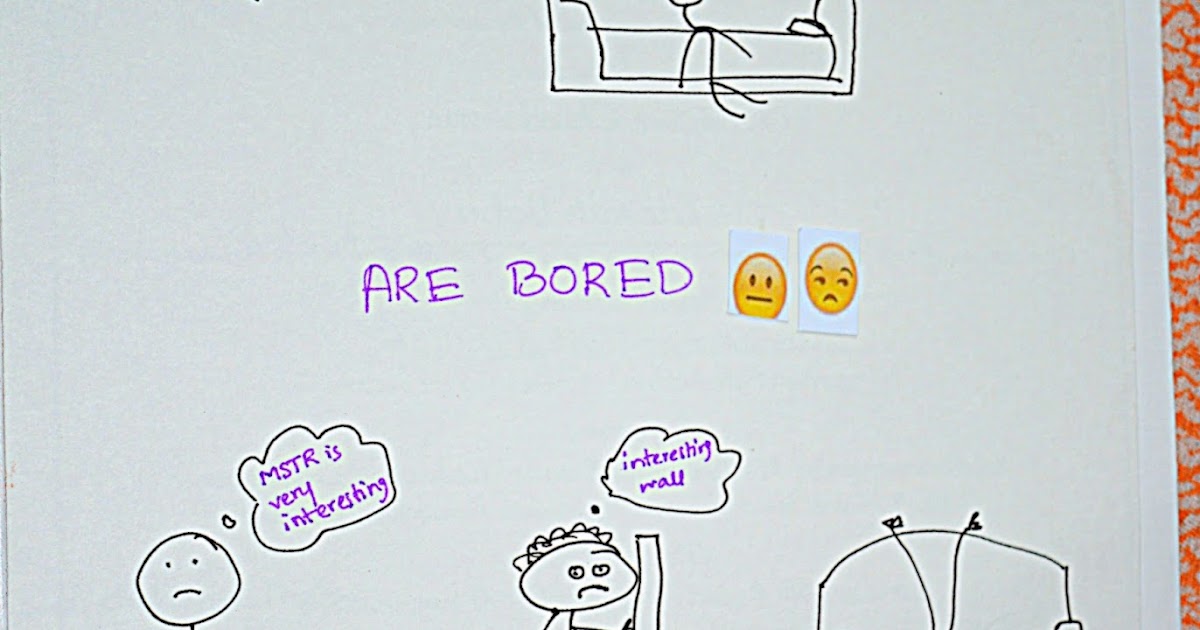 ARE BORED
MSTR is
very
interesting
interesting
wall